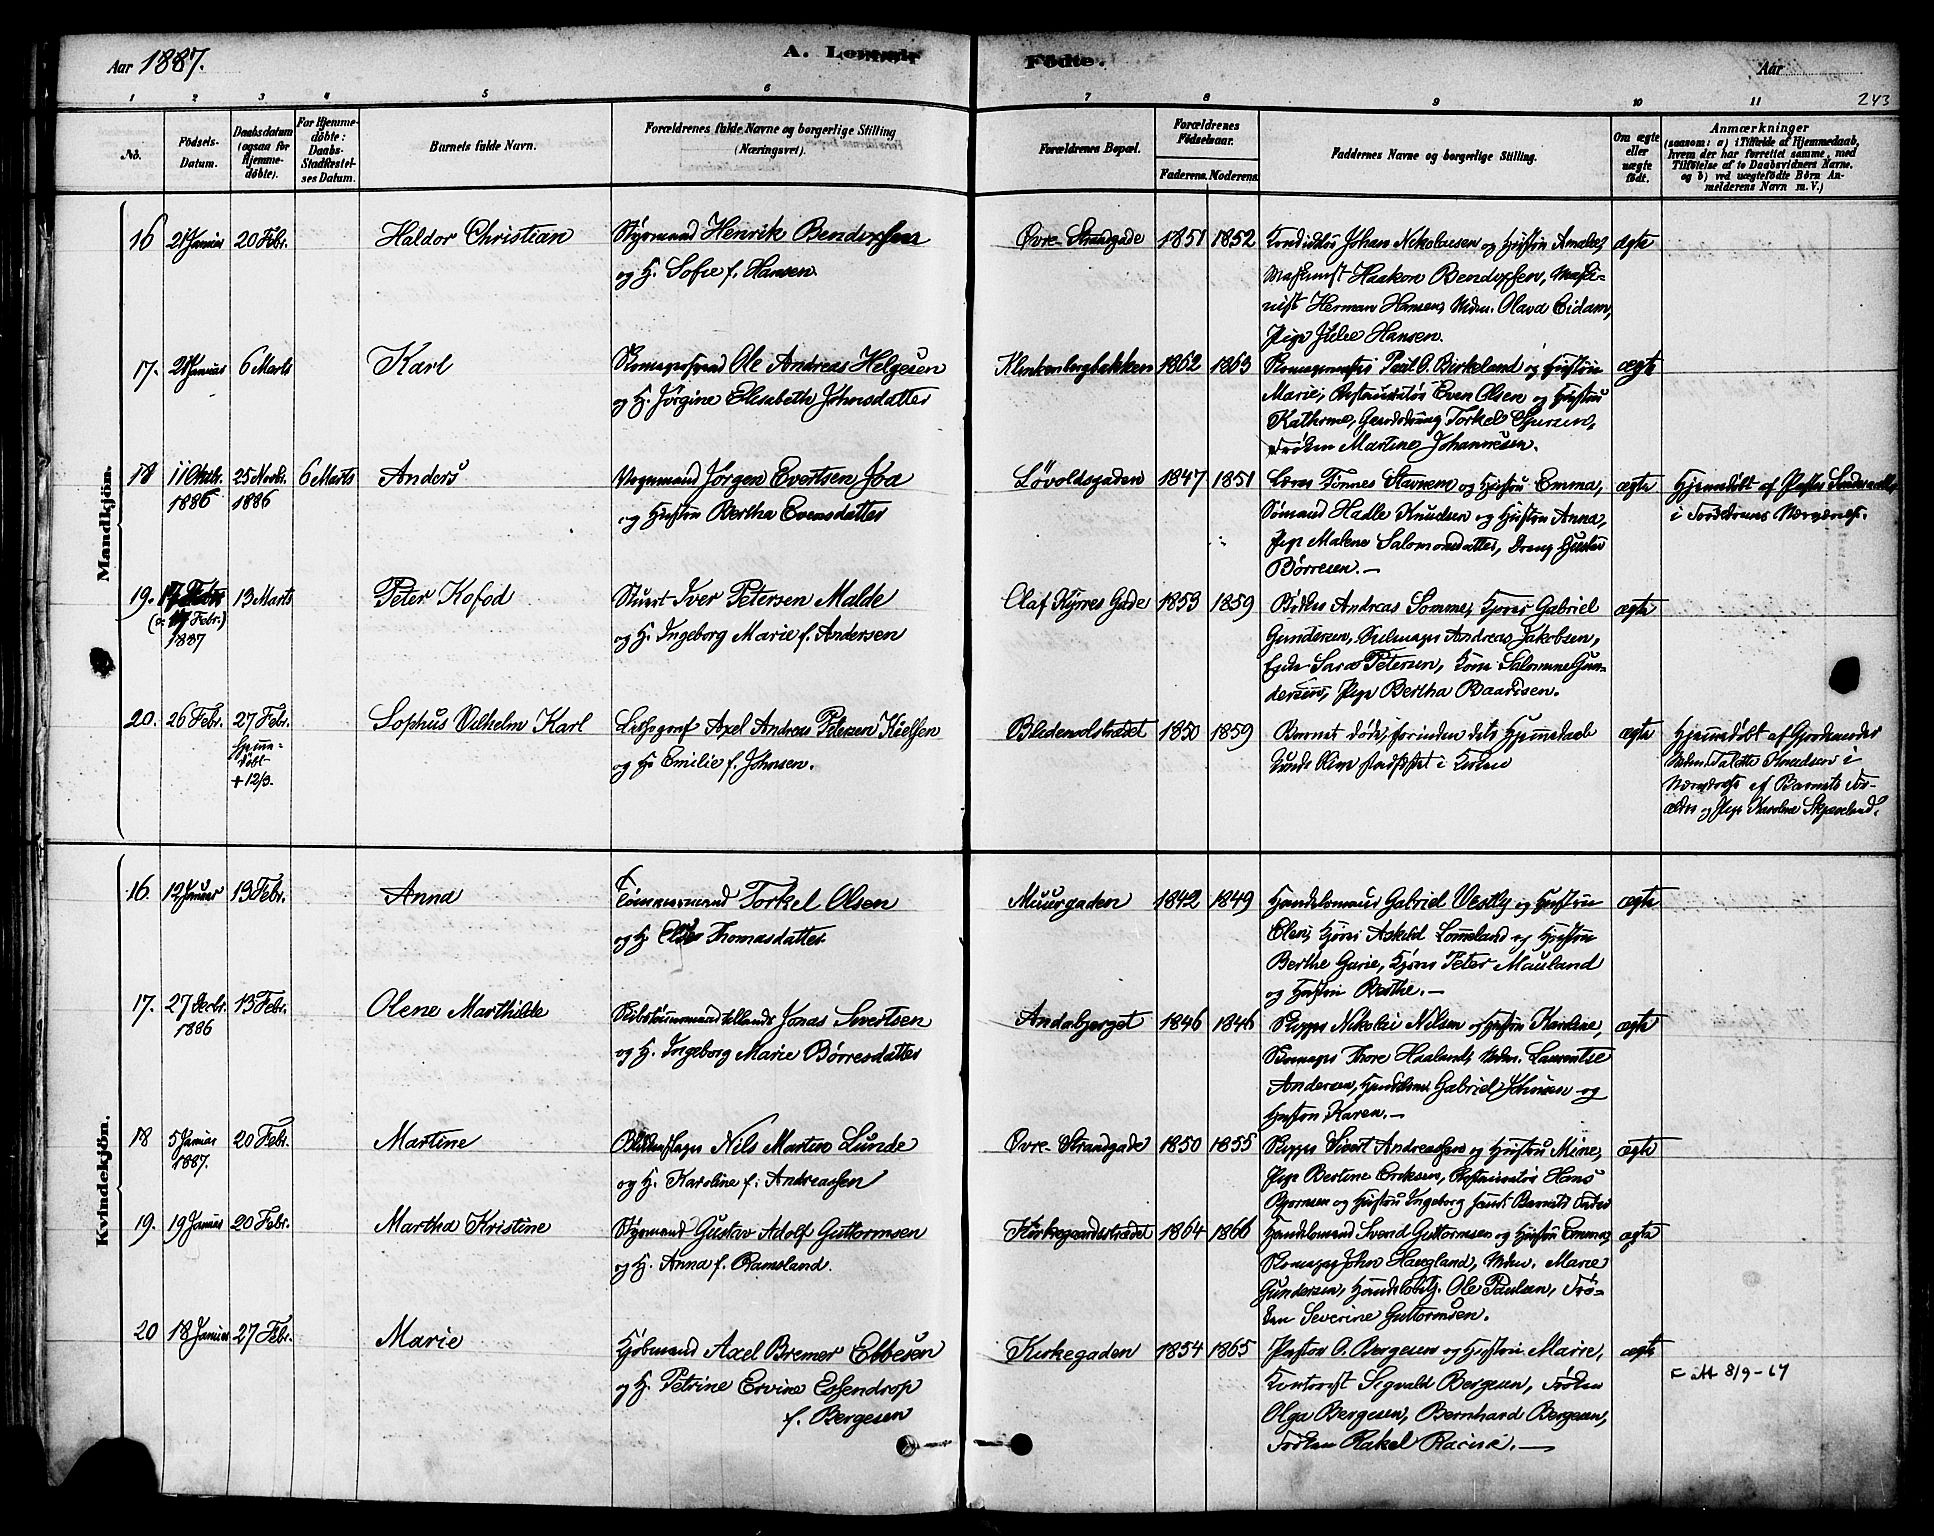 Aar 1887.
A. Levende Fødte.
Aar
243
1 2 3 4 5 6 7 8 9 10 11
No.
Fødsels-Datum.
Daabsdatum (ogsaa for Hjemmedøbte).
For Hjemmedøbte: Daabs-Stadfæstelses Datum.
Barnets fulde Navn.
Forældrenes fulde Navne og borgerlige Stilling (Næringsvei).
Forældrenes Bopæl.
Forældrenes Fødselsaar.
Faderens. Moderens.
Faddernes Navne og borgerlige Stilling.
Om ægte eller uægte født.
Anmærkninger
(saasom: a) i Tilfælde af Hjemmedaab, hvem der har forrettet samme, med Tilføielse af to Daabsvidners Navne, og b) ved uægtefødte Børn Anmelderens Navn m. V.)
Mandkjön.
16 21 Januar 20 Febr. Haldor Christian Styrmand Henrik Bendixsen Øvre Strandgade 1851 1852 Johan Nikolaisen og Hustru Amalie, ægte
og H. Sofie f. Hansen. Maskinist Haakon Bendixsen, Maski-
nist Herman Hansen, Mdm. Olava Eidam,
Pige Julie Hansen.
17. 21 Januar 6 Marts Karl Ole Andreas Helgesen Klinkenbergbakken 1862 1863 Paul O. Birkeland og Hustru ægte
og H. Jørgine Elisabeth Johnsdatter Marie, Even Olsen og Hustru
Kathrine, Torkel
Frøken Martine Johannesen.
18 11 Oktbr. 25 Novbr. 6 Marts Anders Vognmand Jørgen Evertsen Joa Løvoldsgaden 1847 1851 Lærer Tønnes Stavnem og Hustru Emma, ægte Hjemmedøbt af Pastor
1886 1886 og Hustru Bertha Evensdatter Sømand Hadle Knudsen og Hustru Anna, i Forældrenes Nærværelse.
Pige Malene Salomonsdatter, Dreng Gustav
Børresen.
19. 13 Marts Peter Kofod Stuert Iver Petersen Malde Olaf Kyrres Gade 1853 1859 Bødker Andreas Somme, Gabriel ægte
Febr.) og H. Ingeborg Marie f. Andersen Gundersen, Andreas Jakobsen,
1887 Enke Sara Petersen, Kone Salomine Gun-
dersen, Pige Bertha Baardsen.
20. 26 Febr. 27 Febr. Sophus Vilhelm Karl Lithograf Axel Andreas Petersen Kielsen Blidensolstrædet 1850 1859 Barnet døde, forinden dets Hjemmedaab ægte Hjemmedøbt af Gjordemoder
Hjemmedøbt og H. Emilie f. Johnsen. kunde blive stadfæstet i Kirken Mdm. Knudsen i
+ 12/3. Nærværelse af Barnets For-
ældre og Pige Karoline Skjæveland.
Kvindekjön.
16. 12 Januar 13 Febr. Anna Tømmermand Torkel Olsen Muurgaden 1842 1849 Handelsmand Gabriel Vestly og Hustru ægte
og H. Thomasdatter Askild Lomeland og Hustru
Berthe Gurie, Peter Mauland
og Hustru Berthe.
17. 27 Decbr. 13 Febr. Olene Marthilde Jonas Sivertsen Andabjerget 1846 1846 Skipper Nikolai Nilsen og Hustru Karoline, ægte
1886 og H. Ingeborg Marie Børresdatter Skomager Thore Haaland, Mdm. Laurentse
Andersen, Gabriel Johnsen og
Hustru Karen.
18 5 Januar 20 Febr. Martine Blikkenslager Nils Martin Lunde Øvre Strandgade 1850 1855 Skipper Sivert Andreassen og Hustru Mine, ægte
1887. og H. Karoline f. Andreassen Pige Bertine Eriksen, Hans
Bjørnsen og Hustru Ingeborg samt Barnets Fader
19. 19 Januar 20 Febr. Martha Kristine Styrmand Gustav Adolf Guttormsen Kirkegaardsstrædet 1864 1866 Handelsmand Svend Guttormsen og Hustru Emma, ægte
og H. Anna f. Ramsland. Skomager John Haugland, Mdm. Marie
Gundersen, Ole Paulsen, Frø-
ken Severine Guttormsen.
20 18 Januar 27 Febr. Marie Kjøbmand Axel Bremer Ebbesen Kirkegaden 1854 1865 Pastor O. Bergesen og Hustru Marie, ægte
og H. Petrine Ervine Essendrop Kontorist Sigvald Bergesen, Frøken 8/9-67
f. Bergesen Olga Bergesen, Bernhard Bergesen,
Frøken Rakel Racine.